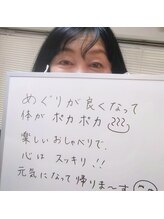 めぐりが良くなって
体がポカポカ
楽しいおしゃべりで、
心はスッキリ!!
元気になって帰りま〜す